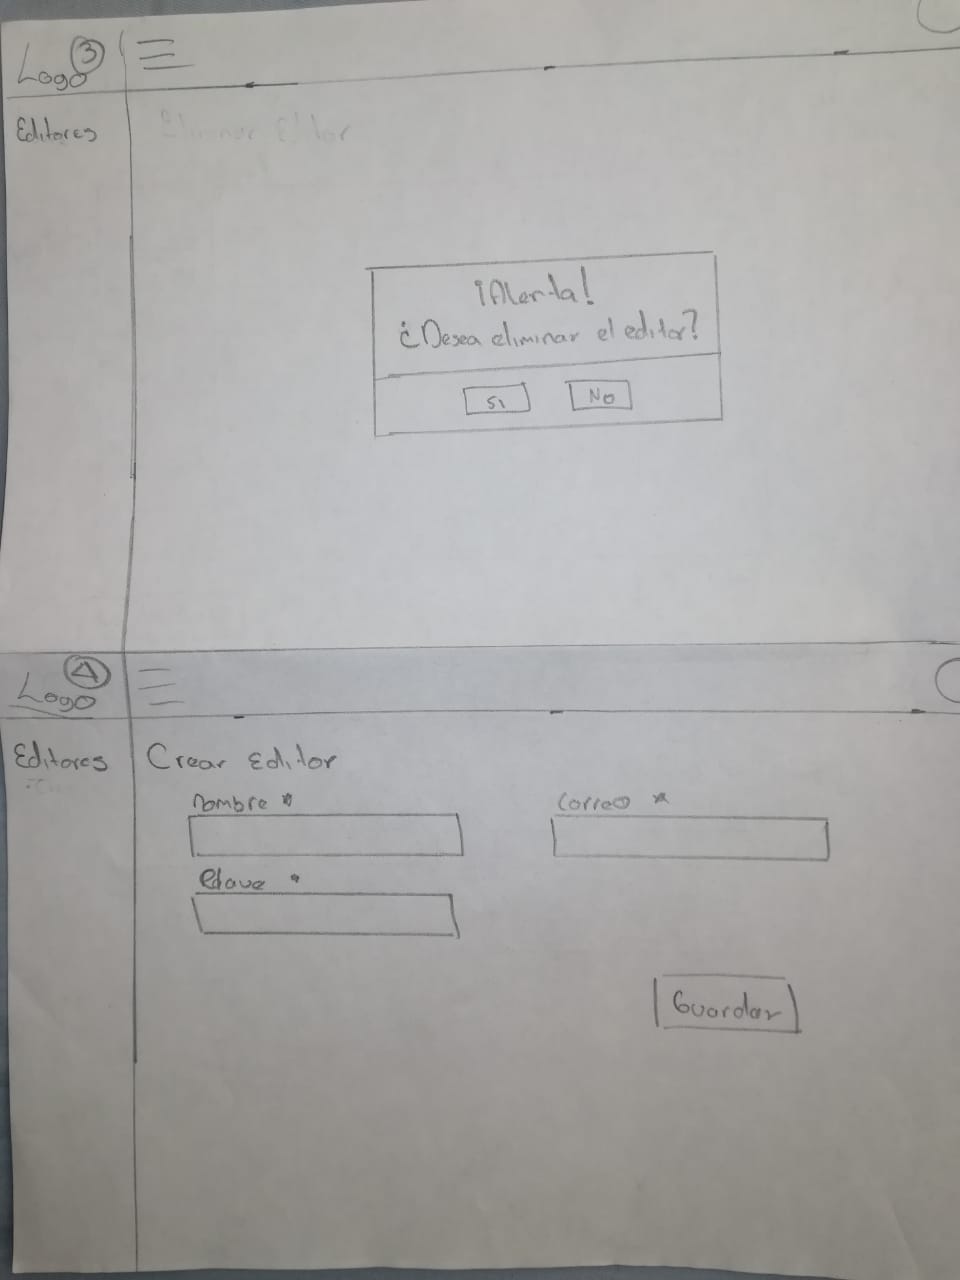 Logo 3
Editores
Eliminar Editor
¡Alerta!
¿Desea eliminar el editor?
Si
No
Logo 4
Editores
Crear Editor
Nombre *
Correo *
Clave *
Guardar